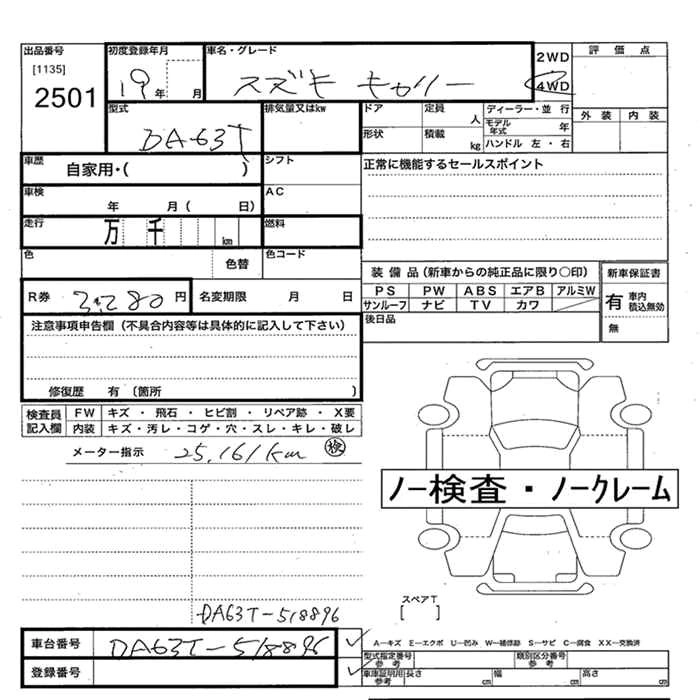 出品番号 初度登録年月 車名・グレード 2WD 評価点
[1135] 19年 月 スズキ キャリー 4WD
2501
型式 排気量又はkw ドア 定員 人 ディーラー・並行 外装 内装
DA-63T モデル年式 年
形状 積載 kg ハンドル 左・右
車歴 自家用・( ) シフト 正常に機能するセールスポイント
車検 年 月( 日) AC
走行 万 千 km 燃料
色 色替 色コード
装備品(新車からの純正品に限り○印) 新車保証書
R券 円 名変期限 月 日 PS PW ABS エアB アルミW 有 車内積込無効
サンルーフ ナビ TV カワ
注意事項申告欄(不具合内容等は具体的に記入して下さい) 後日品 無
修復歴 有(箇所 )
検査員記入欄 FW キズ・飛石・ヒビ割・リペア跡・X要
内装 キズ・汚レ・コゲ・穴・スレ・キレ・破レ
メーター指示 25,161km 検
ノー検査・ノークレーム
スペアT
[ ]
DA63T-518896
車台番号 DA63T-518896 A―キズ E―エクボ U―凹み W―補修跡 S―サビ C―腐食 XX―交換済
型式指定番号 参考 類別区分番号 参考
登録番号 車庫証明用参考 長さ cm 幅 cm 高さ cm